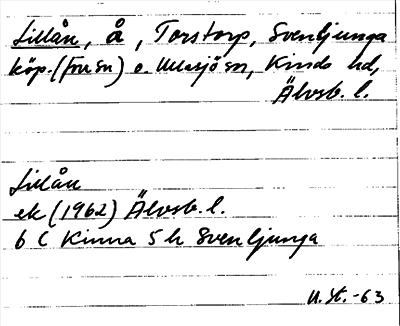 Lillån, å, Torstorp, Svenljunga
köp. (fru sn) o. Ullasjö sn, Kinds hd,
Älvsb. l.
Lillån
ek (1962) Älvsb. l.
6 C Kinna 5 h Svenljunga
U. St. -63